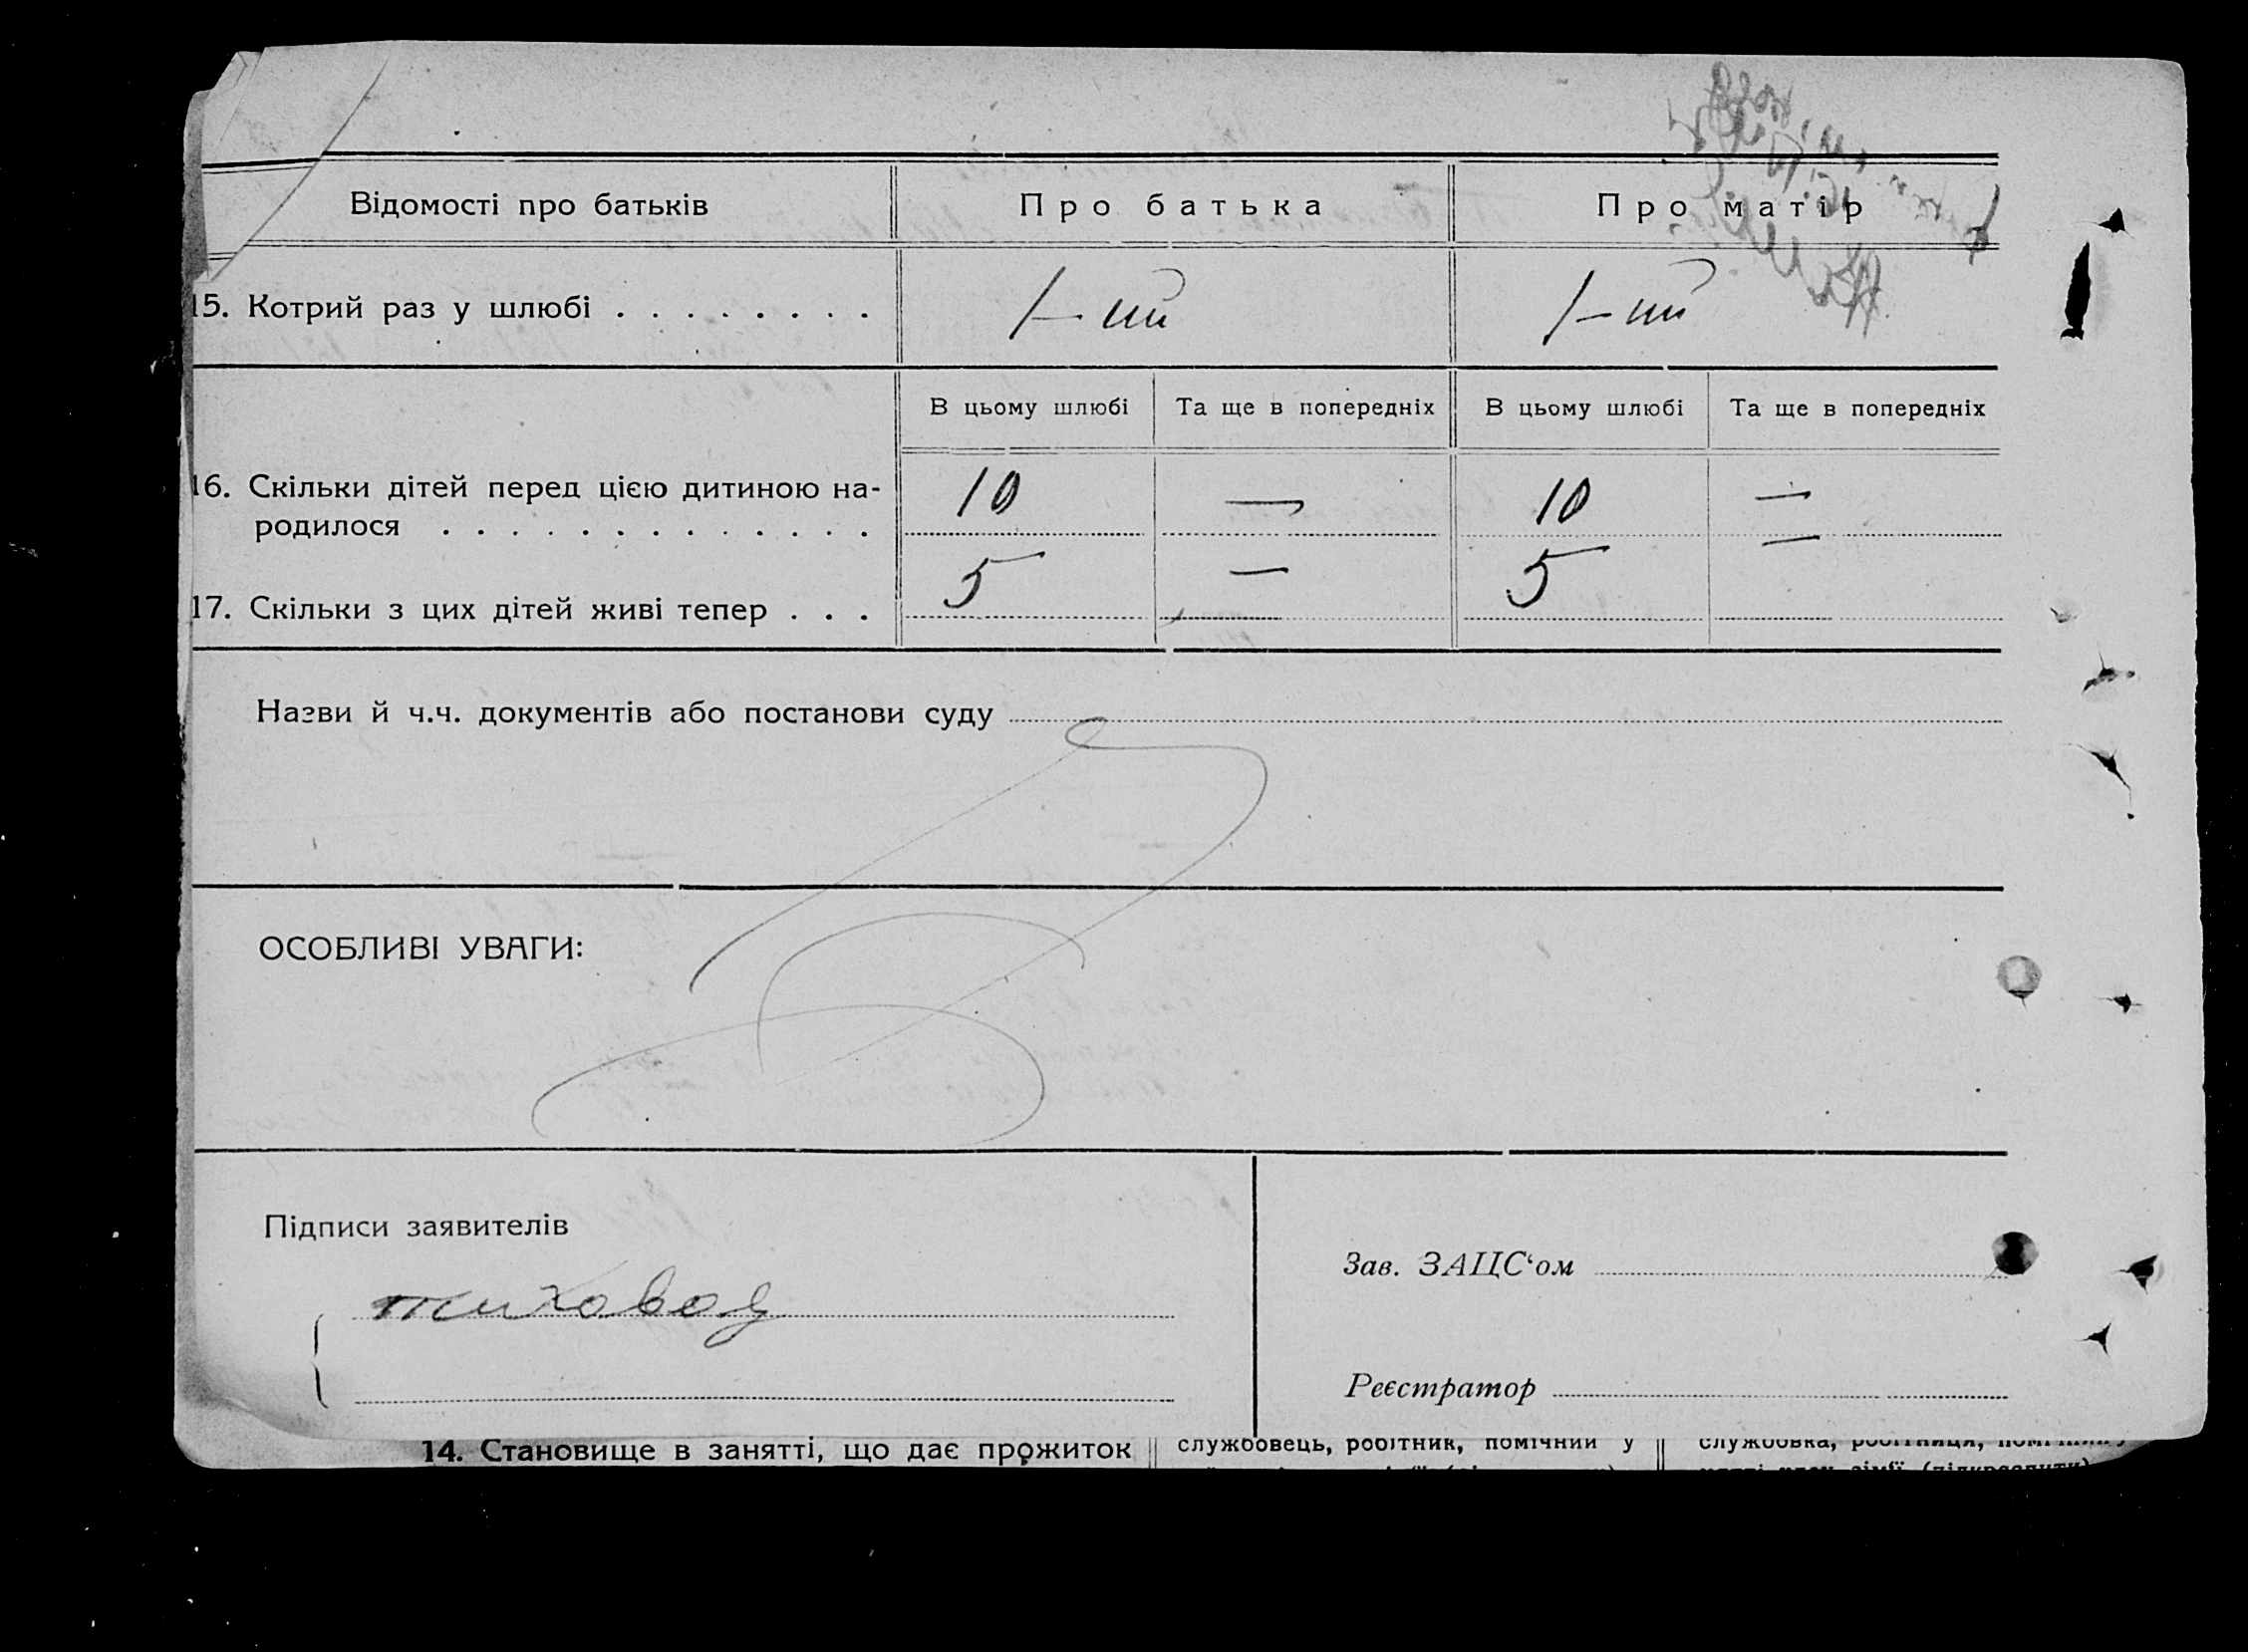 Відомості про батьків Про батька Про матір
15. Котрий раз у шлюбі . . . . . . . . 1-ий 1-ий
В цьому шлюбі Та ще в попередніх В цьому шлюбі Та ще в попередніх
16. Скільки дітей перед цією дитиною на-
родилося . . . . . . . . . . . . . 10 — 10 —
17. Скільки з цих дітей живі тепер . . . 5 — 5 —
Назви й ч.ч. документів або постанови суду
ОСОБЛИВІ УВАГИ:
Підписи заявителів
Зав. ЗАЦС‘ом
тиховод
Реєстратор
14. Становище в занятті, що дає прожиток службовець, робітник, помічний у службовка, робітниця,